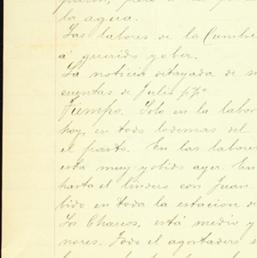 la agua.
Las labores de la Cumbre
á querido y ober.
La noticia detayada de su
cuentas de Julio p. pº
Tiempo. Solo en la labor
hoy, en todo lodemas del
el parto. En las labores
esta muy yobido ayer. En
hasta el lindero con Juan
bido en toda la estacion de
Los Charcos, está medio y
nores. Todo el agostadero e